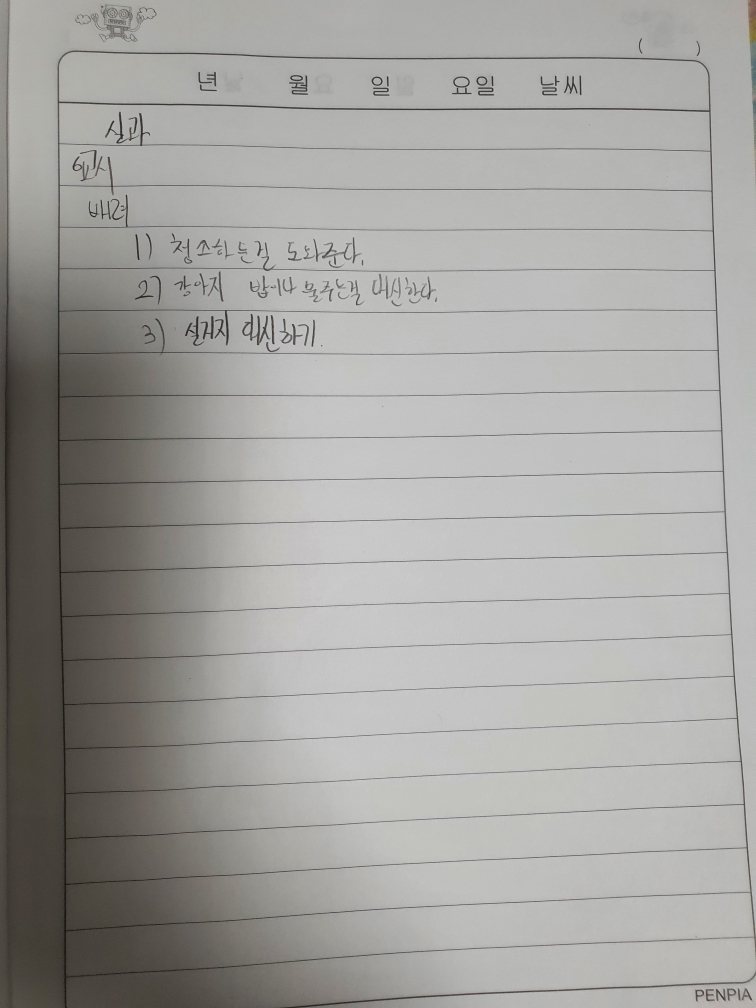 (        )
년 월 일 요일 날씨
실과
6교시
배려
1) 청소하는걸 도와준다.
2) 강아지 밥이나 물주는걸 대신한다.
3) 설거지 대신하기.
PENPIA